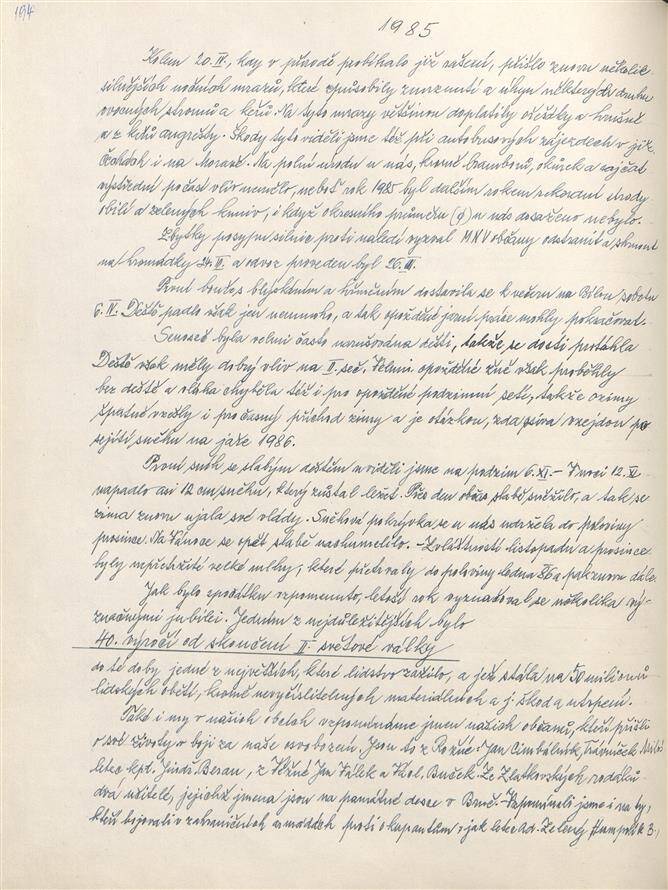 194
1985
Kolem 20. IV., kdy v přírodě probíhalo již rašení, přišlo znovu několik
silnějších nočních mrazů, které způsobily zmrznutí a úhyn některých druhů
ovocných stromů a keřů. Na tyto mrazy většinou doplatily ořešáky a hrušně
a z keřů angrešty. Škody tyto viděli jsme též při autobusových zájezdech v již.
Čechách i na Moravě. Na polní úrodu u nás, kromě brambor, okurek a rajčat
výstřední počasí vliv nemělo, neboť rok 1985 byl dalším rokem rekordní úrody
obilí a zelených krmiv, i když okresního průměru (q) u nás dosaženo nebylo.
Zbytky posypu silnic proti náledí vyzval MNV občany odstranit a shrnout
na hromádky 24. III. a odvoz proveden byl 26. III.
První bouřka s blýskáním a hřměním dostavila se k večeru na Bílou sobotu
6. IV. Deště padlo však jen nemnoho, a tak opožděné jarní práce mohly pokračovat.
Senoseč byla velmi často narušována dešti, takže se dosti protáhla.
Deště však měly dobrý vliv na II. seč. Velmi opožděné žně však proběhly
bez deště a vláha chyběla též i pro opožděné podzimní setí, takže ozimy
špatně vzešly i pro časný příchod zimy a je otázkou, zda vzejdou po
sejití sněhu na jaře 1986.
První sníh se slabým deštěm viděli jsme na podzim 6. XI. – V noci 12. XI.
napadlo asi 12 cm sněhu, který zůstal ležet. Přes den občas slabě sněžilo, a tak se
zima znovu ujala své vlády. Sněhová pokrývka se u nás udržela do poloviny
prosince. Na Vánoce se opět slabě nachumelilo. – Zvláštností listopadu a prosince
byly nepřetržité velké mlhy, které přetrvaly do poloviny ledna 86 a pak znovu dále.
Jak bylo zpočátku vzpomenuto, letošní rok vyznačoval se několika vý-
značnými jubilei. Jedním z nejdůležitějších bylo
40. výročí od skončení II. světové války
do té doby jedné z největších, které lidstvo zažilo, a jež stála na 50 milionů
lidských obětí, kromě nevyčíslitelných materiálních a j. škod a utrpení.
Také i my v našich obcích vzpomínáme jmen našich občanů, kteří přišli
o své životy v boji za naše osvobození. Jsou to z Rožné: Jan Cimbálník, Trávníček Miloš
letec kpt. Jindř. Beran, z Jan Válek a Buček. Ze Zlatkovských rodáků
dva učitelé, jejichž jména jsou na pamětné desce v Brně. – Vzpomínáli jsme i na ty,
kteří bojovali v zahraničních armádách proti okupantům, jak letec Ad. Zelený,